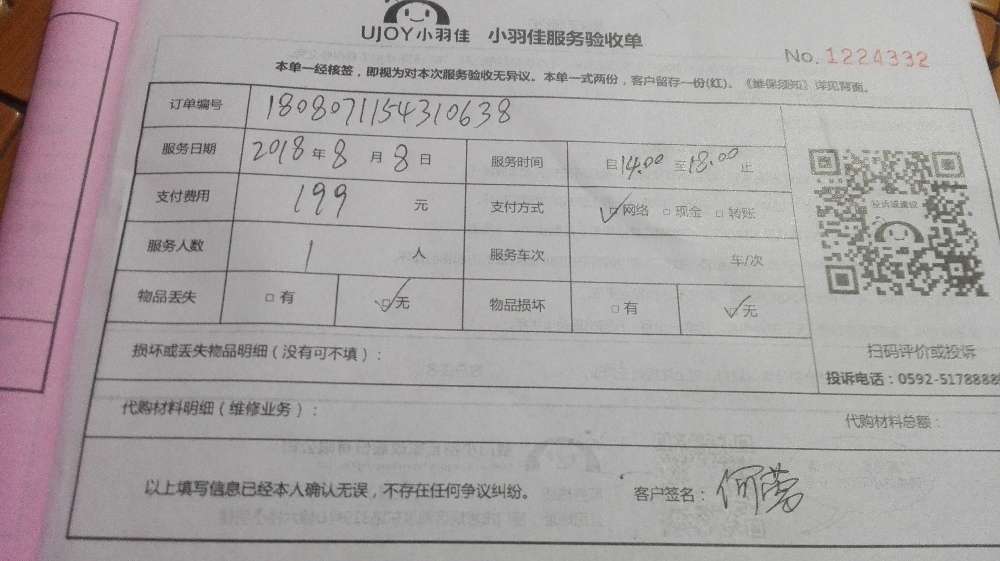 UJOY小羽佳 小羽佳服务验收单
No. 1224332
本单一经核签，即视为对本次服务验收无异议。本单一式两份，客户留存一份(红)。《维保须知》详见背面。
订单编号 1808071154310638
服务日期 2018 年 8 月 8 日 服务时间 自 14.00 至 18.00 止
支付费用 199 元 支付方式 ☑网络 □现金 □转账
服务人数 1 人 服务车次 车/次
物品丢失 □有 ☑无 物品损坏 □有 ☑无
投诉或建议
扫码评价或投诉
投诉电话：0592-5178888
损坏或丢失物品明细（没有可不填）：
代购材料明细（维修业务）： 代购材料总额：
以上填写信息已经本人确认无误，不存在任何争议纠纷。 客户签名：何莹